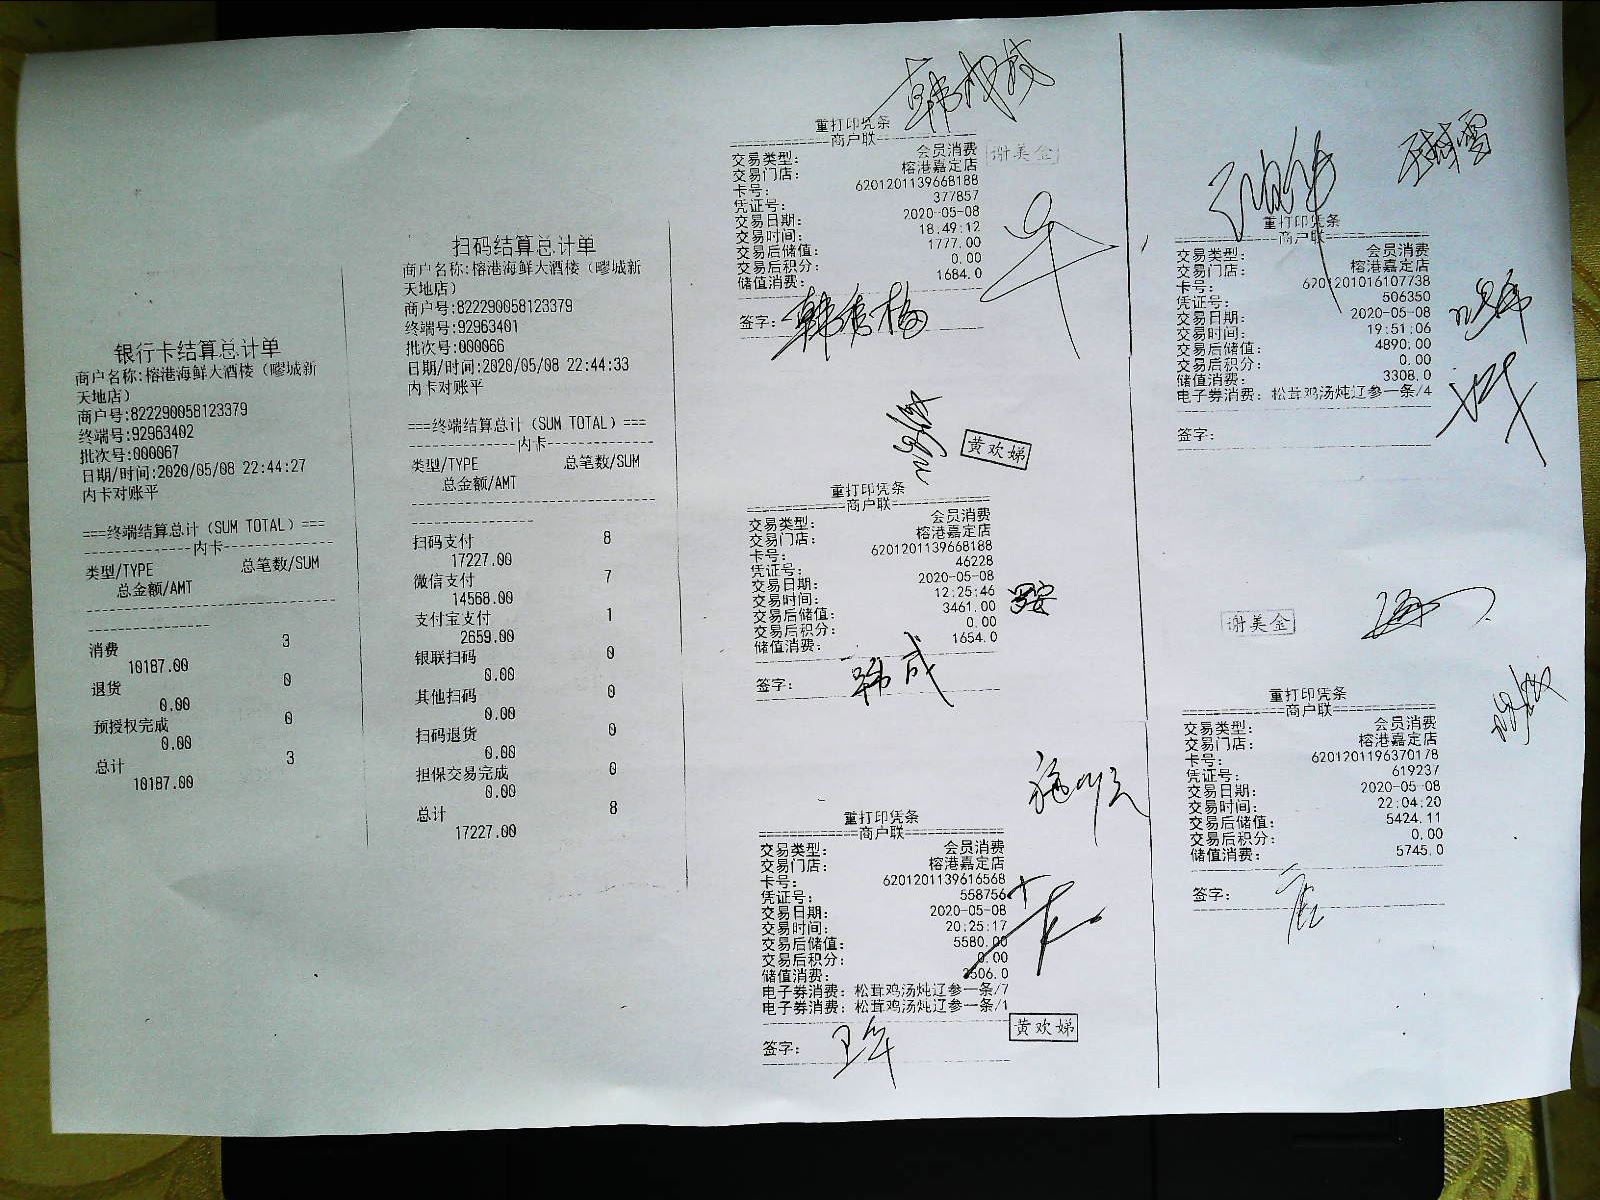 银行卡结算总计单
商户名称:榕港海鲜大酒楼（疁城新
天地店）
商户号:822290058123379
终端号:92963402
批次号:000067
日期/时间:2020/05/08 22:44:27
内卡对账平
===终端结算总计（SUM TOTAL）===
---------------内卡---------------
类型/TYPE 总笔数/SUM
总金额/AMT
消费 3
10187.00
退货 0
0.00
预授权完成 0
0.00
总计 3
10187.00
扫码结算总计单
商户名称:榕港海鲜大酒楼（疁城新
天地店）
商户号:822290058123379
终端号:92963401
批次号:000066
日期/时间:2020/05/08 22:44:33
内卡对账平
===终端结算总计（SUM TOTAL）===
---------------内卡---------------
类型/TYPE 总笔数/SUM
总金额/AMT
扫码支付 8
17227.00
微信支付 7
14568.00
支付宝支付 1
2659.00
银联扫码 0
0.00
其他扫码 0
0.00
扫码退货 0
0.00
担保交易完成 0
0.00
总计 8
17227.00
重打印凭条
商户联
交易类型: 会员消费
谢美金
交易门店: 榕港嘉定店
卡号: 6201201139668188
凭证号: 377857
交易日期: 2020-05-08
交易时间: 18:49:12
交易后储值: 1777.00
交易后积分: 0.00
储值消费: 1684.0
签字: 韩秀梅
黄欢娣
重打印凭条
商户联
交易类型: 会员消费
交易门店: 榕港嘉定店
卡号: 6201201139668188
凭证号: 46228
交易日期: 2020-05-08
交易时间: 12:25:46
交易后储值: 3461.00
交易后积分: 0.00
储值消费: 1654.0
签字: 韩成
重打印凭条
商户联
交易类型: 会员消费
交易门店: 榕港嘉定店
卡号: 6201201139616568
凭证号: 558756
交易日期: 2020-05-08
交易时间: 20:25:17
交易后储值: 5580.00
交易后积分: 0.00
储值消费: 3506.0
电子券消费: 松茸鸡汤炖辽参一条/7
电子券消费: 松茸鸡汤炖辽参一条/1
黄欢娣
签字:
重打印凭条
商户联
交易类型: 会员消费
交易门店: 榕港嘉定店
卡号: 6201201016107738
凭证号: 506350
交易日期: 2020-05-08
交易时间: 19:51:06
交易后储值: 4890.00
交易后积分: 0.00
储值消费: 3308.0
电子券消费: 松茸鸡汤炖辽参一条/4
签字:
谢美金
重打印凭条
商户联
交易类型: 会员消费
交易门店: 榕港嘉定店
卡号: 6201201196370178
凭证号: 619237
交易日期: 2020-05-08
交易时间: 22:04:20
交易后储值: 5424.11
交易后积分: 0.00
储值消费: 5745.0
签字: